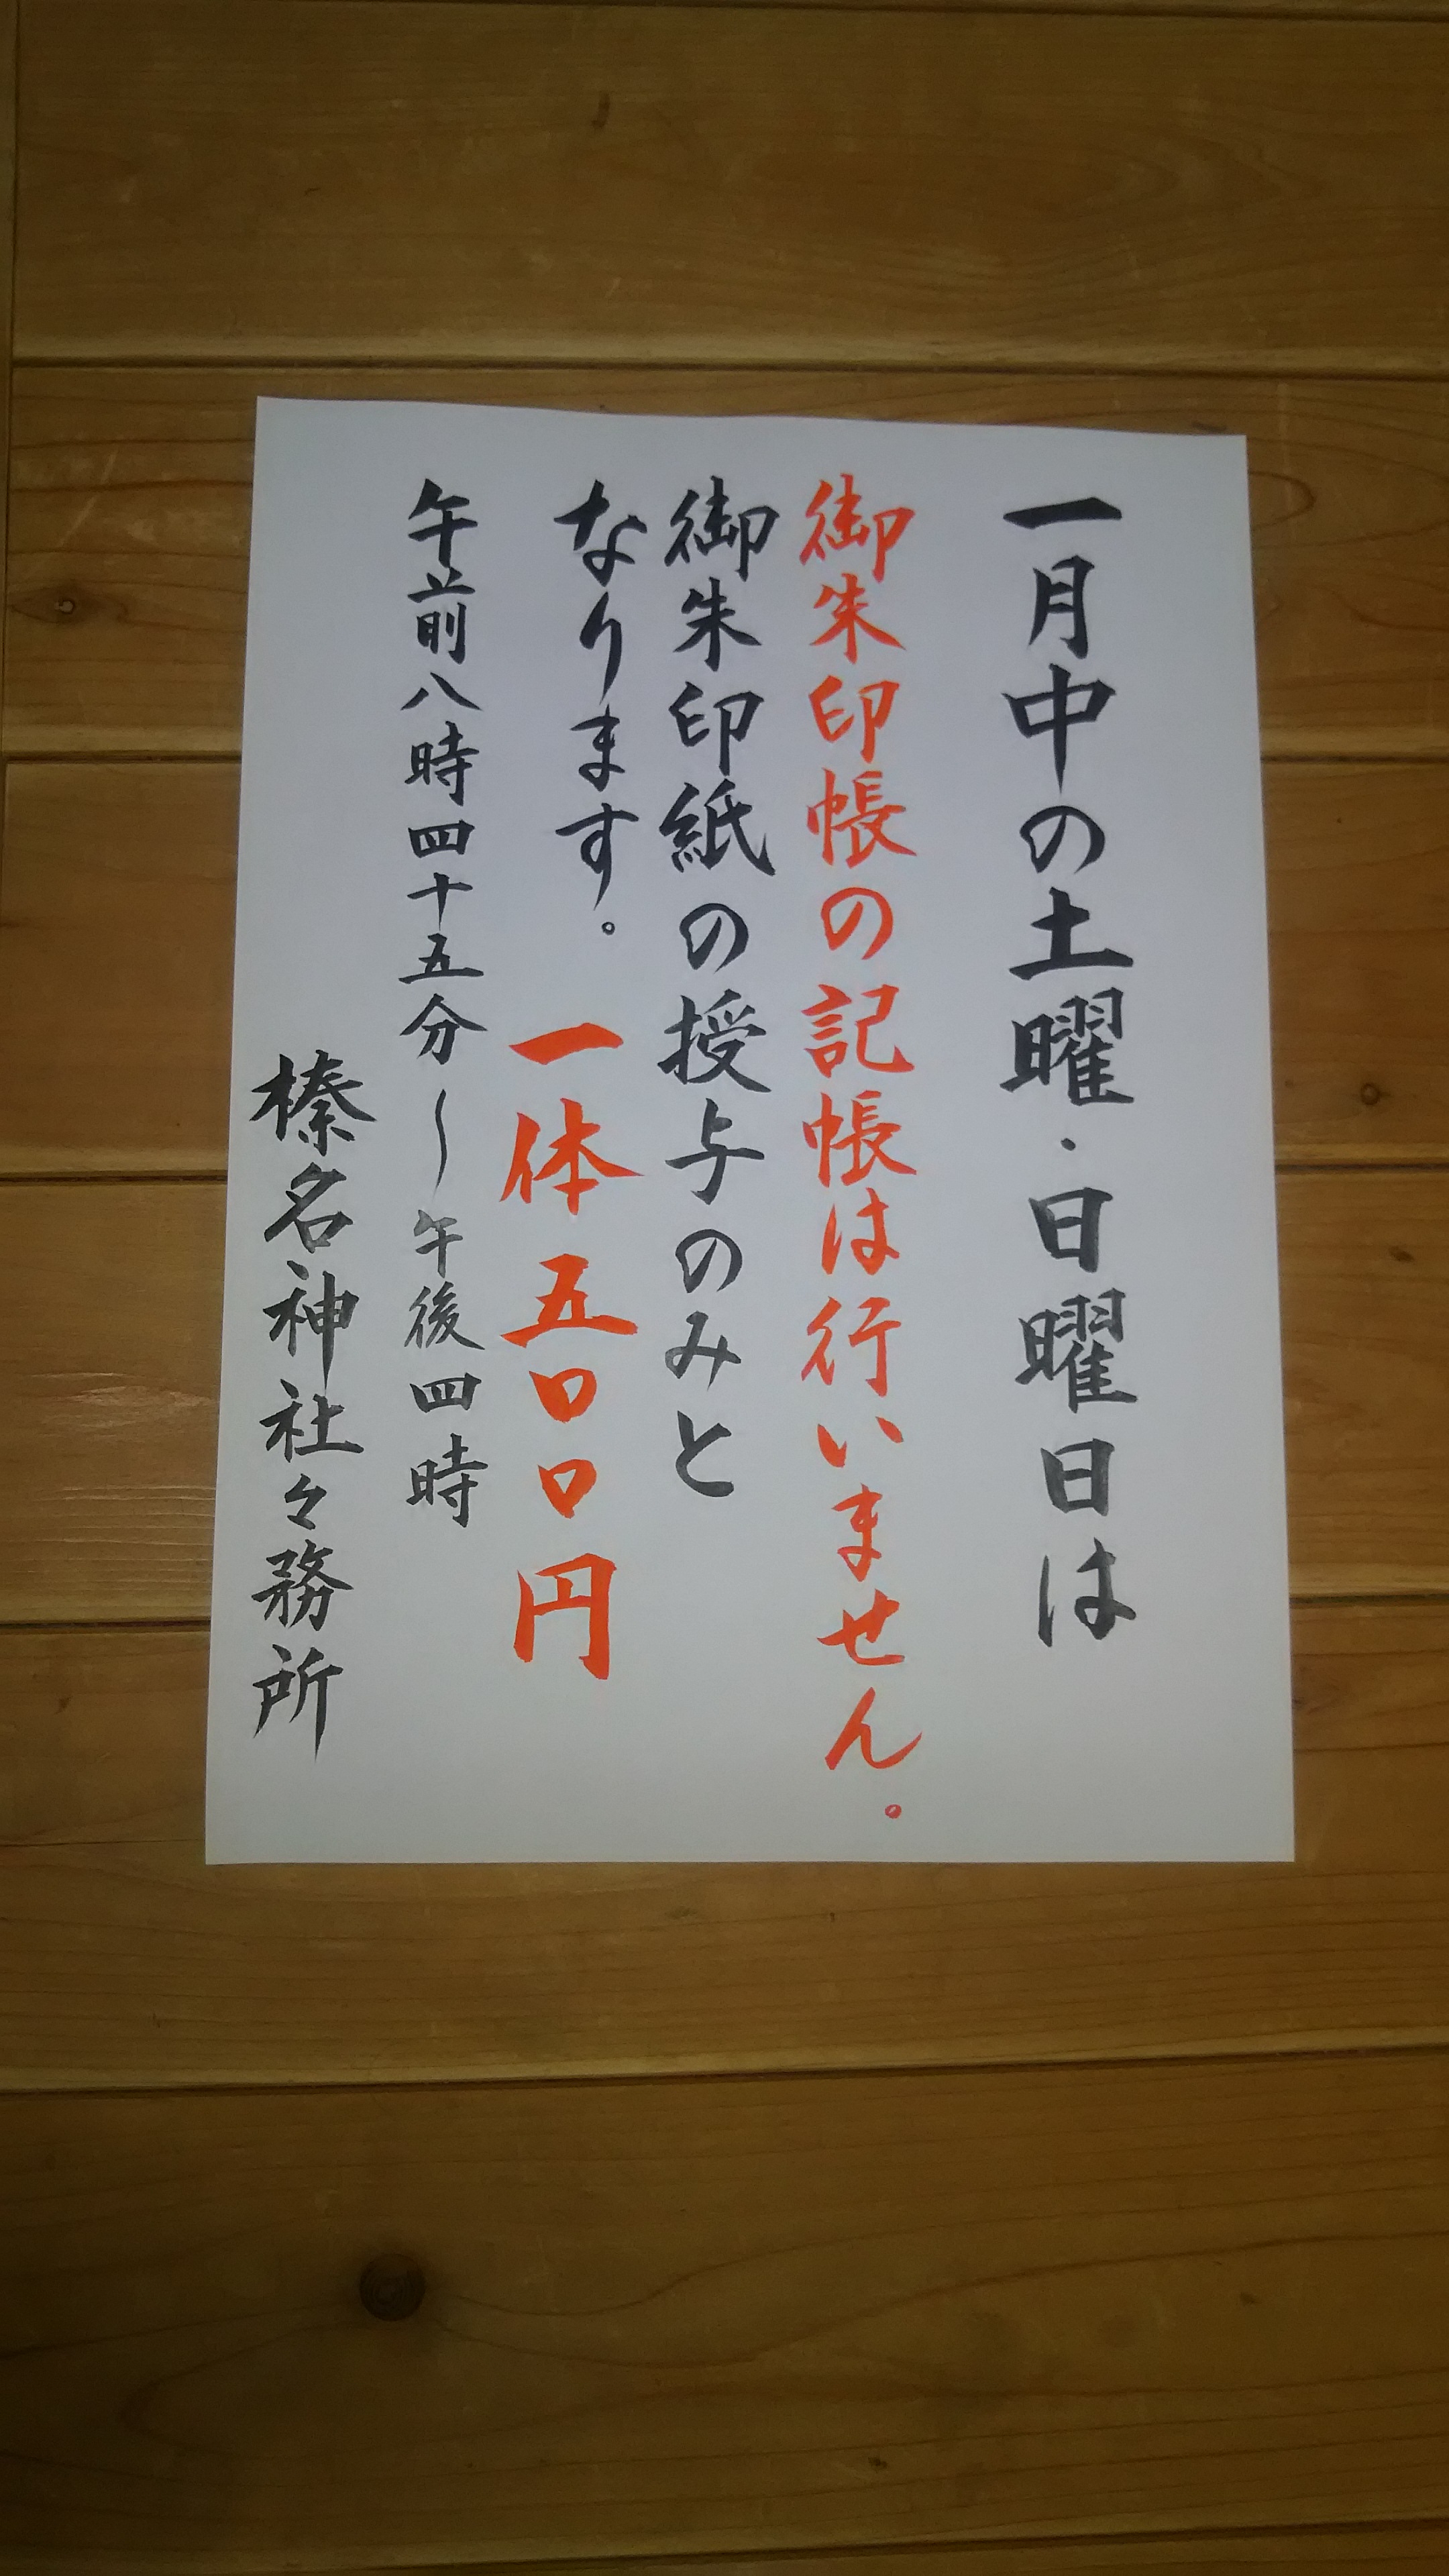 一月中の土曜・日曜日は
御朱印帳の記帳は行いません。
御朱印紙の授与のみと
なります。 一体 五〇〇円
午前八時四十五分〜午後四時
榛名神社々務所